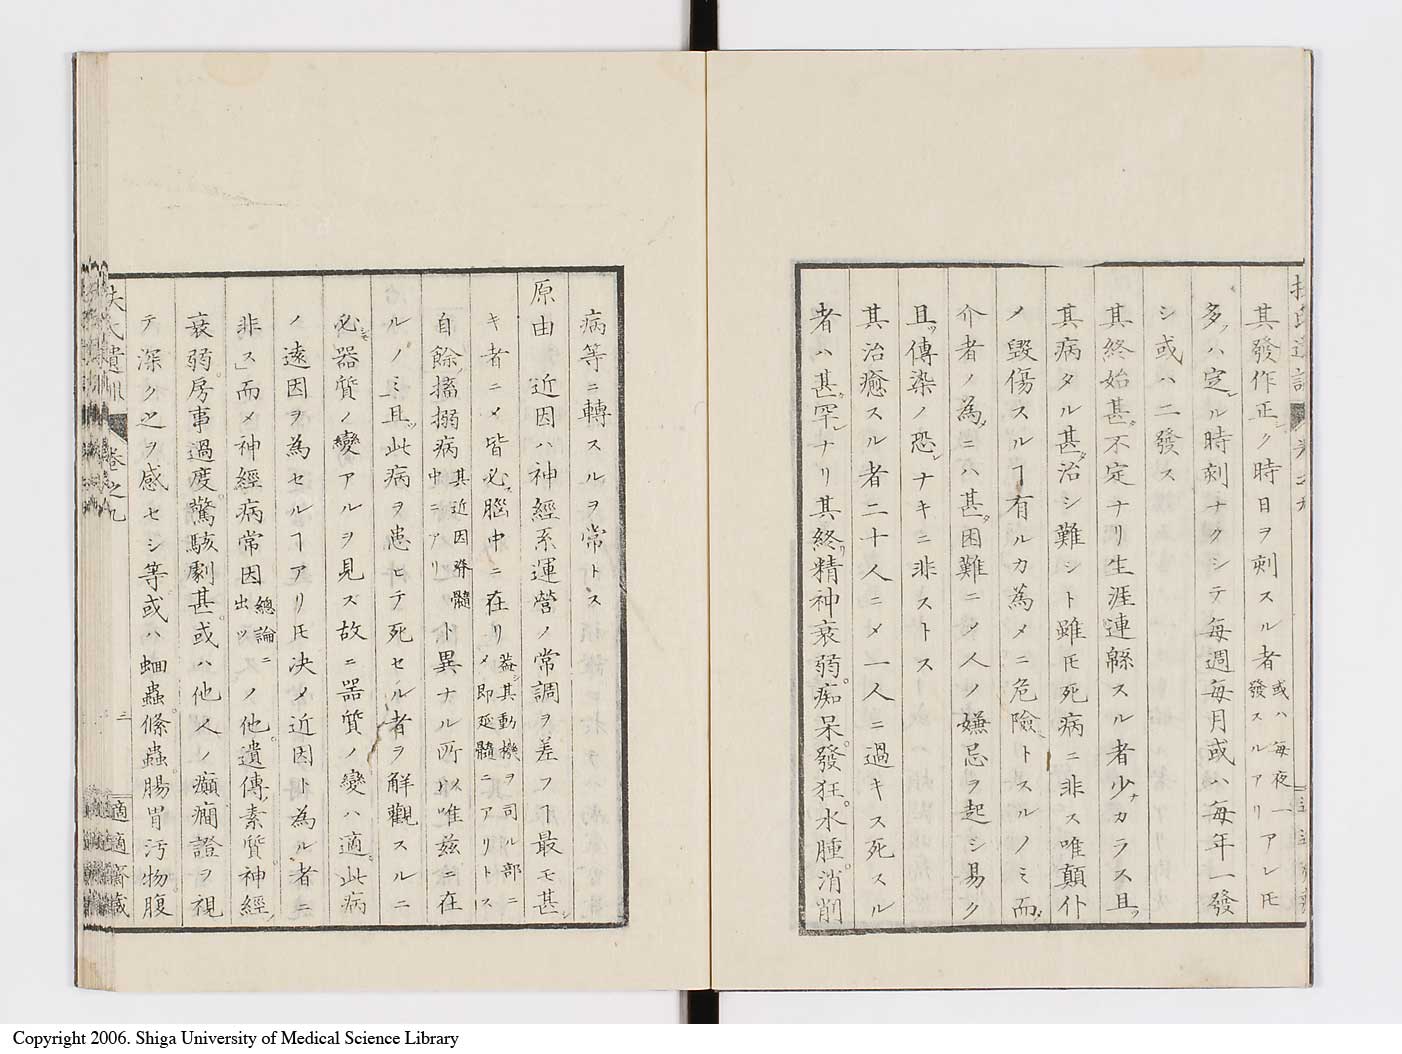 其發作正シク時日ヲ刺スル者或ハ每夜一發スルアリアレ𪜈
多ハ定レル時刻ナクシテ每週每月或ハ每年一發
シ或ハ二發ス
其終始甚タ不定ナリ生涯連緜スル者少ナカラス且ツ
其病タル甚タ治シ難シト雖𪜈死病ニ非ス唯顛仆
ノ毀傷スルヿ有ルカ為メニ危險トスルノミ而
介者ノ為ニハ甚タ困難ニメ人ノ嫌忌ヲ起シ易ク
且ツ傳染ノ恐レナキニ非ストス
其治癒スル者二十人ニメ一人ニ過キス死スル
者ハ甚タ罕レナリ其終リ精神衰弱。痴呆。發狂。水腫。消削
病等ニ轉スルヲ常トス
原由 近因ハ神經系運營ノ常調ヲ差フヿ最モ甚シ
キ者ニメ皆必ス腦中ニ在リメ蓋シ其動機ヲ司ル部ニ即延髓ニアリトス
自餘搐搦病其近因脊髓中ニアリト異ナル所ハ唯茲ニ在
ルノミ」且ツ此病ヲ患ヒテ死セル者ヲ解觀スルニ
必シモ器質ノ變アルヲ見ス故ニ器質ノ變ハ適此病
ノ遠因ヲ為セルヿアリ𪜈決メ近因ト為ル者ニ
非ス」而メ神經病常因總論ニ出ツノ他。遺傳。素質。神經
衰弱。房事過度。驚駭劇甚。或ハ他人ノ癲癇證ヲ視
テ深ク之ヲ感セシ等。或ハ蛔蟲。條蟲。腸胃汚物腹
扶氏遺訓 卷之九 三 適適齋藏
Copyright 2006. Shiga University of Medical Science Library